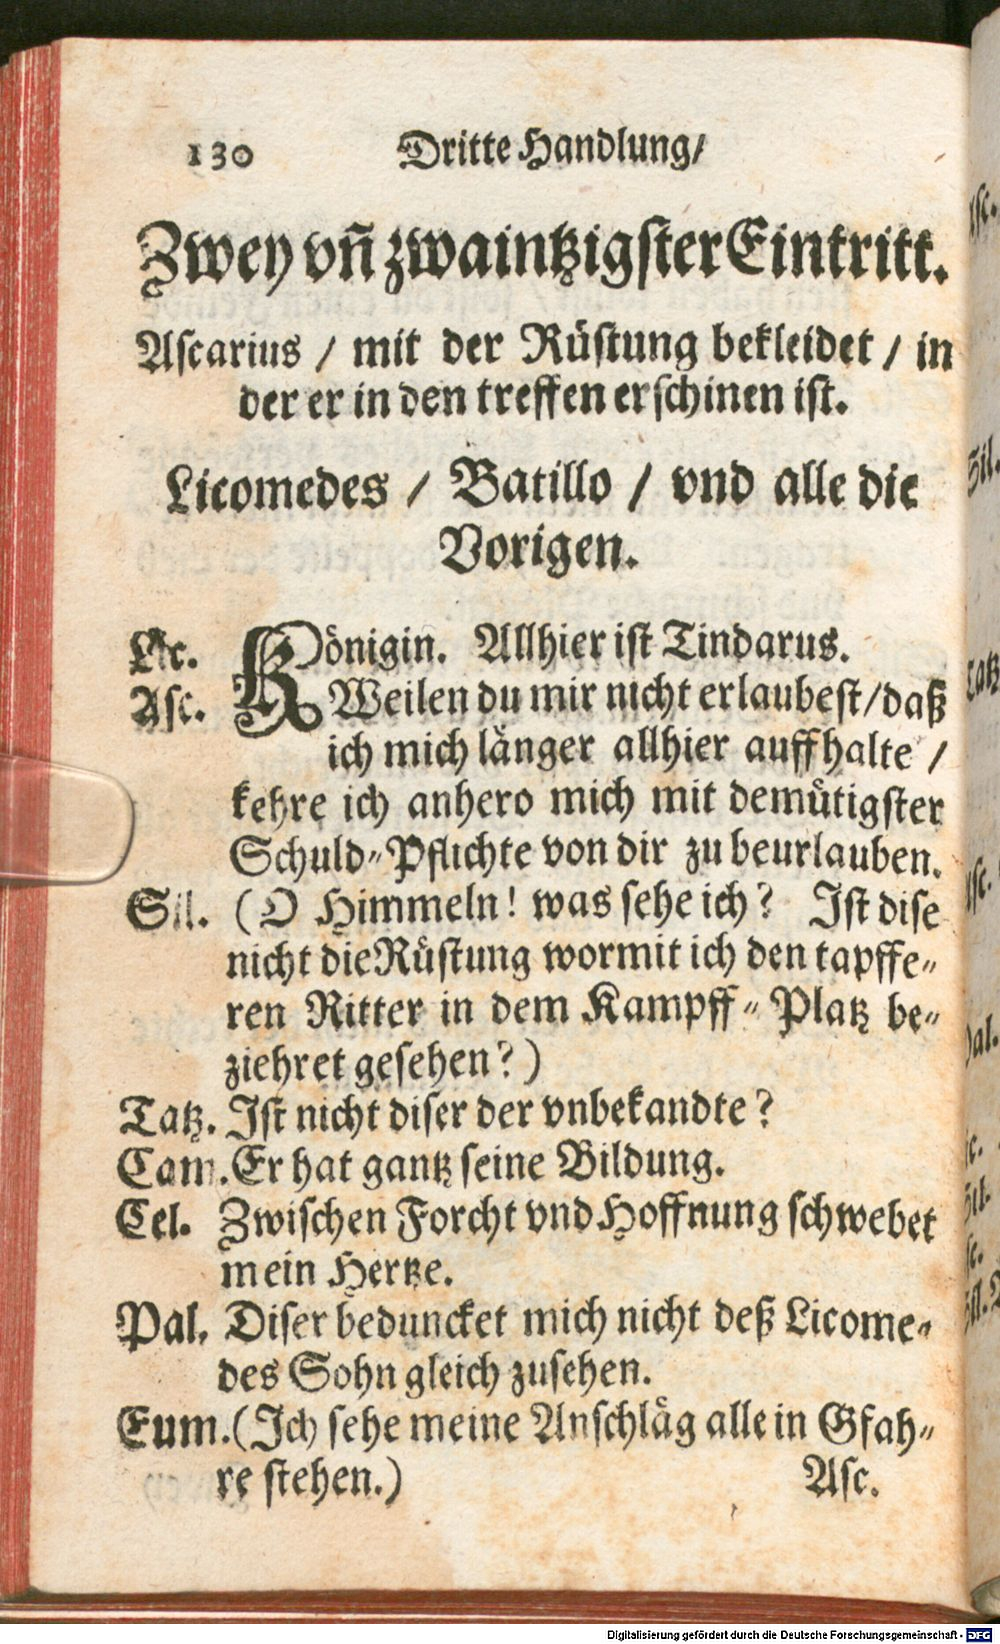 130 Dritte Handlung/
Zwey vñ zwaintzigster Eintritt.
Ascarius / mit der Rüstung bekleidet / in
der er in den treffen erschinen ist.
Licomedes / Batillo / vnd alle die
Vorigen.
Lic. Königin. Allhier ist Tindarus.
Asc. Weilen du mir nicht erlaubest/daß
ich mich länger allhier auffhalte /
kehre ich anhero mich mit demütigster
Schuld-Pflichte von dir zu beurlauben.
Sil. (O Himmeln! was sehe ich? Ist dise
nicht die Rüstung wormit ich den tapffe-
ren Ritter in dem Kampff-Platz be-
ziehret gesehen?)
Tatz. Ist nicht diser der vnbekandte?
Cam. Er hat gantz seine Bildung.
Cel. Zwischen Forcht vnd Hoffnung schwebet
mein Hertze.
Pal. Diser beduncket mich nicht deß Licome-
des Sohn gleich zusehen.
Eum. (Ich sehe meine Anschläg alle in Gfah-
re stehen.) Asc.
Digitalisierung gefördert durch die Deutsche Forschungsgemeinschaft - DFG